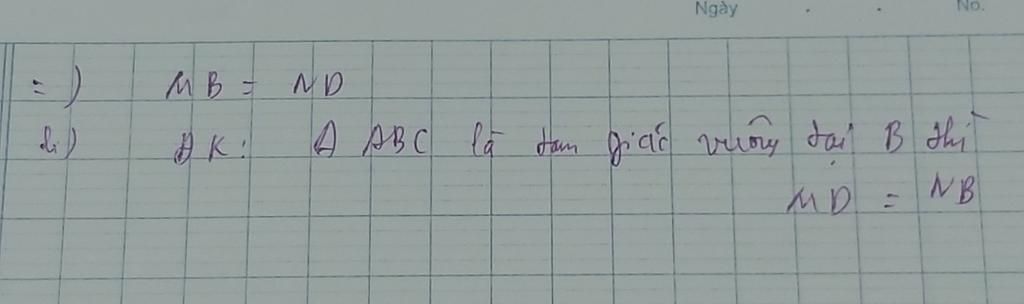 Ngày . . No.
=) MB = ND
b) ĐK: Δ ABC là tam giác vuông tại B thì
MD = NB